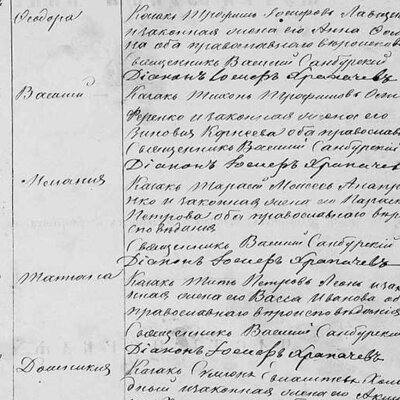 Ѳеодора
Казакъ Трофимъ Іосифовъ Лавщен
и законная жена его Анна Ѳео
на оба православнаго вѣроисповѣ
Священникъ Василій Санбурскій
Діаконъ Іосифъ Храпачевъ
Василій
Казакъ Тихонъ Трофимовъ
Ференко и законная жена его
Зиновия Корнеева оба православ
Священникъ Василій Санбурскій
Діаконъ Іосифъ Храпачевъ
Меланія
Казакъ Тарасій Моисеевъ
ко и законная жена его Парас
Петрова оба православнаго вѣр
сповѣданія
Священникъ Василій Санбурскій
Діаконъ Іосифъ Храпачевъ
Татіана
Казакъ Титъ Петровъ и зако
нная жена его Васса Иванова об
православнаго вѣроисповѣданія
Священникъ Василій Санбурскій
Діаконъ Іосифъ Храпачевъ
Домникія
Казакъ
дный и законная жена его